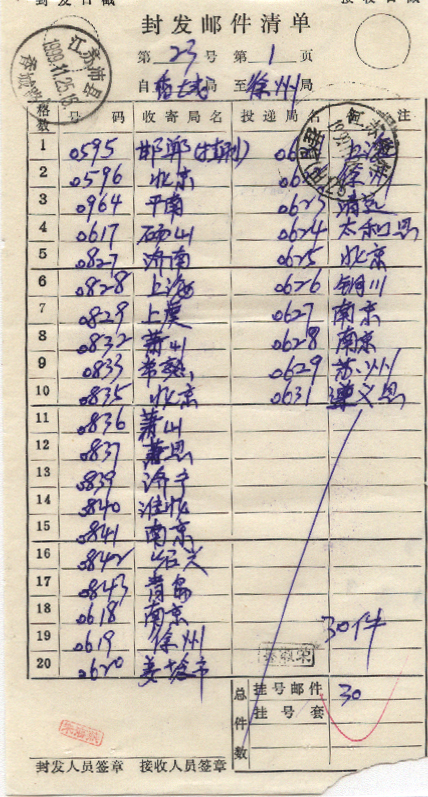 封发邮件清单
第23号 第1页
自 局 至徐州局
江苏沛县
1999.11.25.15
格数 号码 收寄局名 投递局名 注
1 0595 邯郸
2 0596 北京
3 0964 平南 0623 清远
4 0617 砀山 0624 太和县
5 0827 济南 0625 北京
6 0828 上海 0626 铜川
7 0829 上虞 0627 南京
8 0832 萧山 0628 南京
9 0833 常熟 0629 苏州
10 0835 北京 0631 遵义县
11 0836 萧山
12 0837 萧县
13 0839 济宁
14 0840
15 0841 南京
16 0842 绍兴
17 0843 青岛
18 0618 南京
19 0619 徐州 30件
20 0620 姜堰市
总件数 挂号邮件 30
挂号套
封发人员签章 接收人员签章